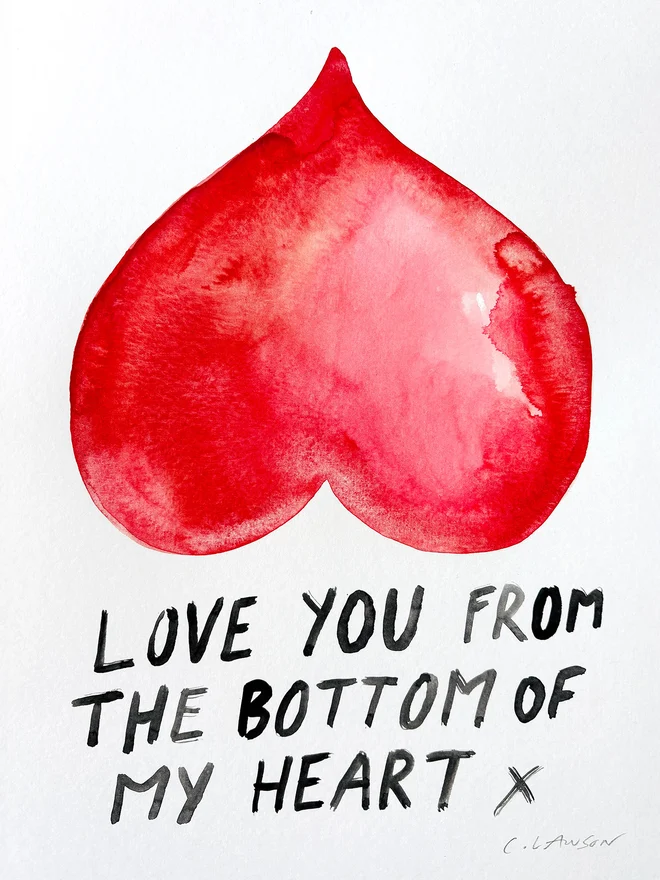 LOVE YOU FROM
THE BOTTOM OF
MY HEART X
C. LAWSON